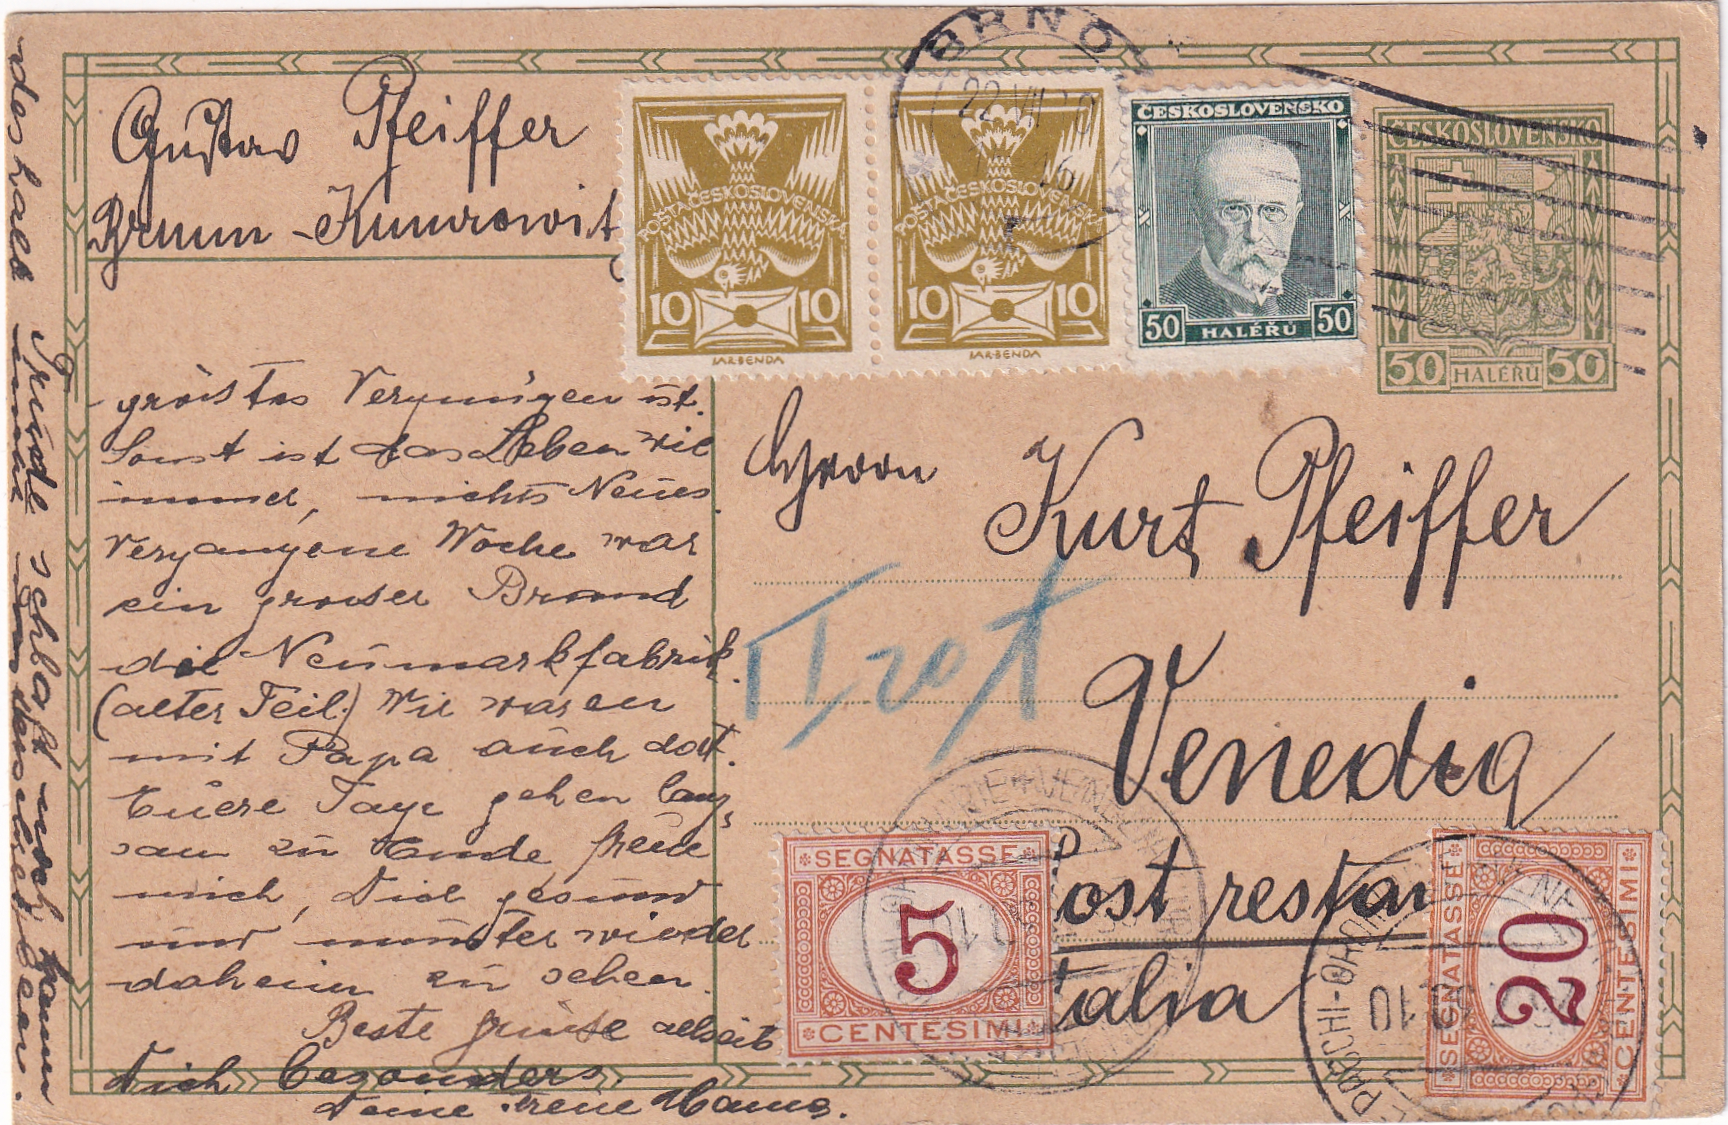 Gustav Pfeiffer
Brünn - Kumrowitz
POŠTA ČESKOSLOVENSKÁ
10 10
JAR·BENDA
POŠTA ČESKOSLOVENSKÁ
10 10
JAR·BENDA
BRNO
22 VII
ČESKOSLOVENSKO
50 HALÉŘŮ 50
ČESKOSLOVENSKO
50 HALÉŘŮ 50
grösstes Vergnügen ist.
Sonst ist das Leben wie
immer, nichts Neues
Vergangene Woche war
ein grosser Brand
die Neumarkfabrik
(alter Teil.) Wir waren
mit Papa auch dort.
Euere Tage gehen lang-
sam zu Ende freue
mich, Dich gesund
und munter wieder
daheim zu sehen.
Beste Grüsse allseits
Dich besonders
Deine treue Mama.
deshalb Trude schbaft noch kaum
immer
Herrn Kurt Pfeiffer
Venedig
Post restan
Italia
T
SEGNATASSE
5
CENTESIMI
SEGNATASSE
20
CENTESIMI